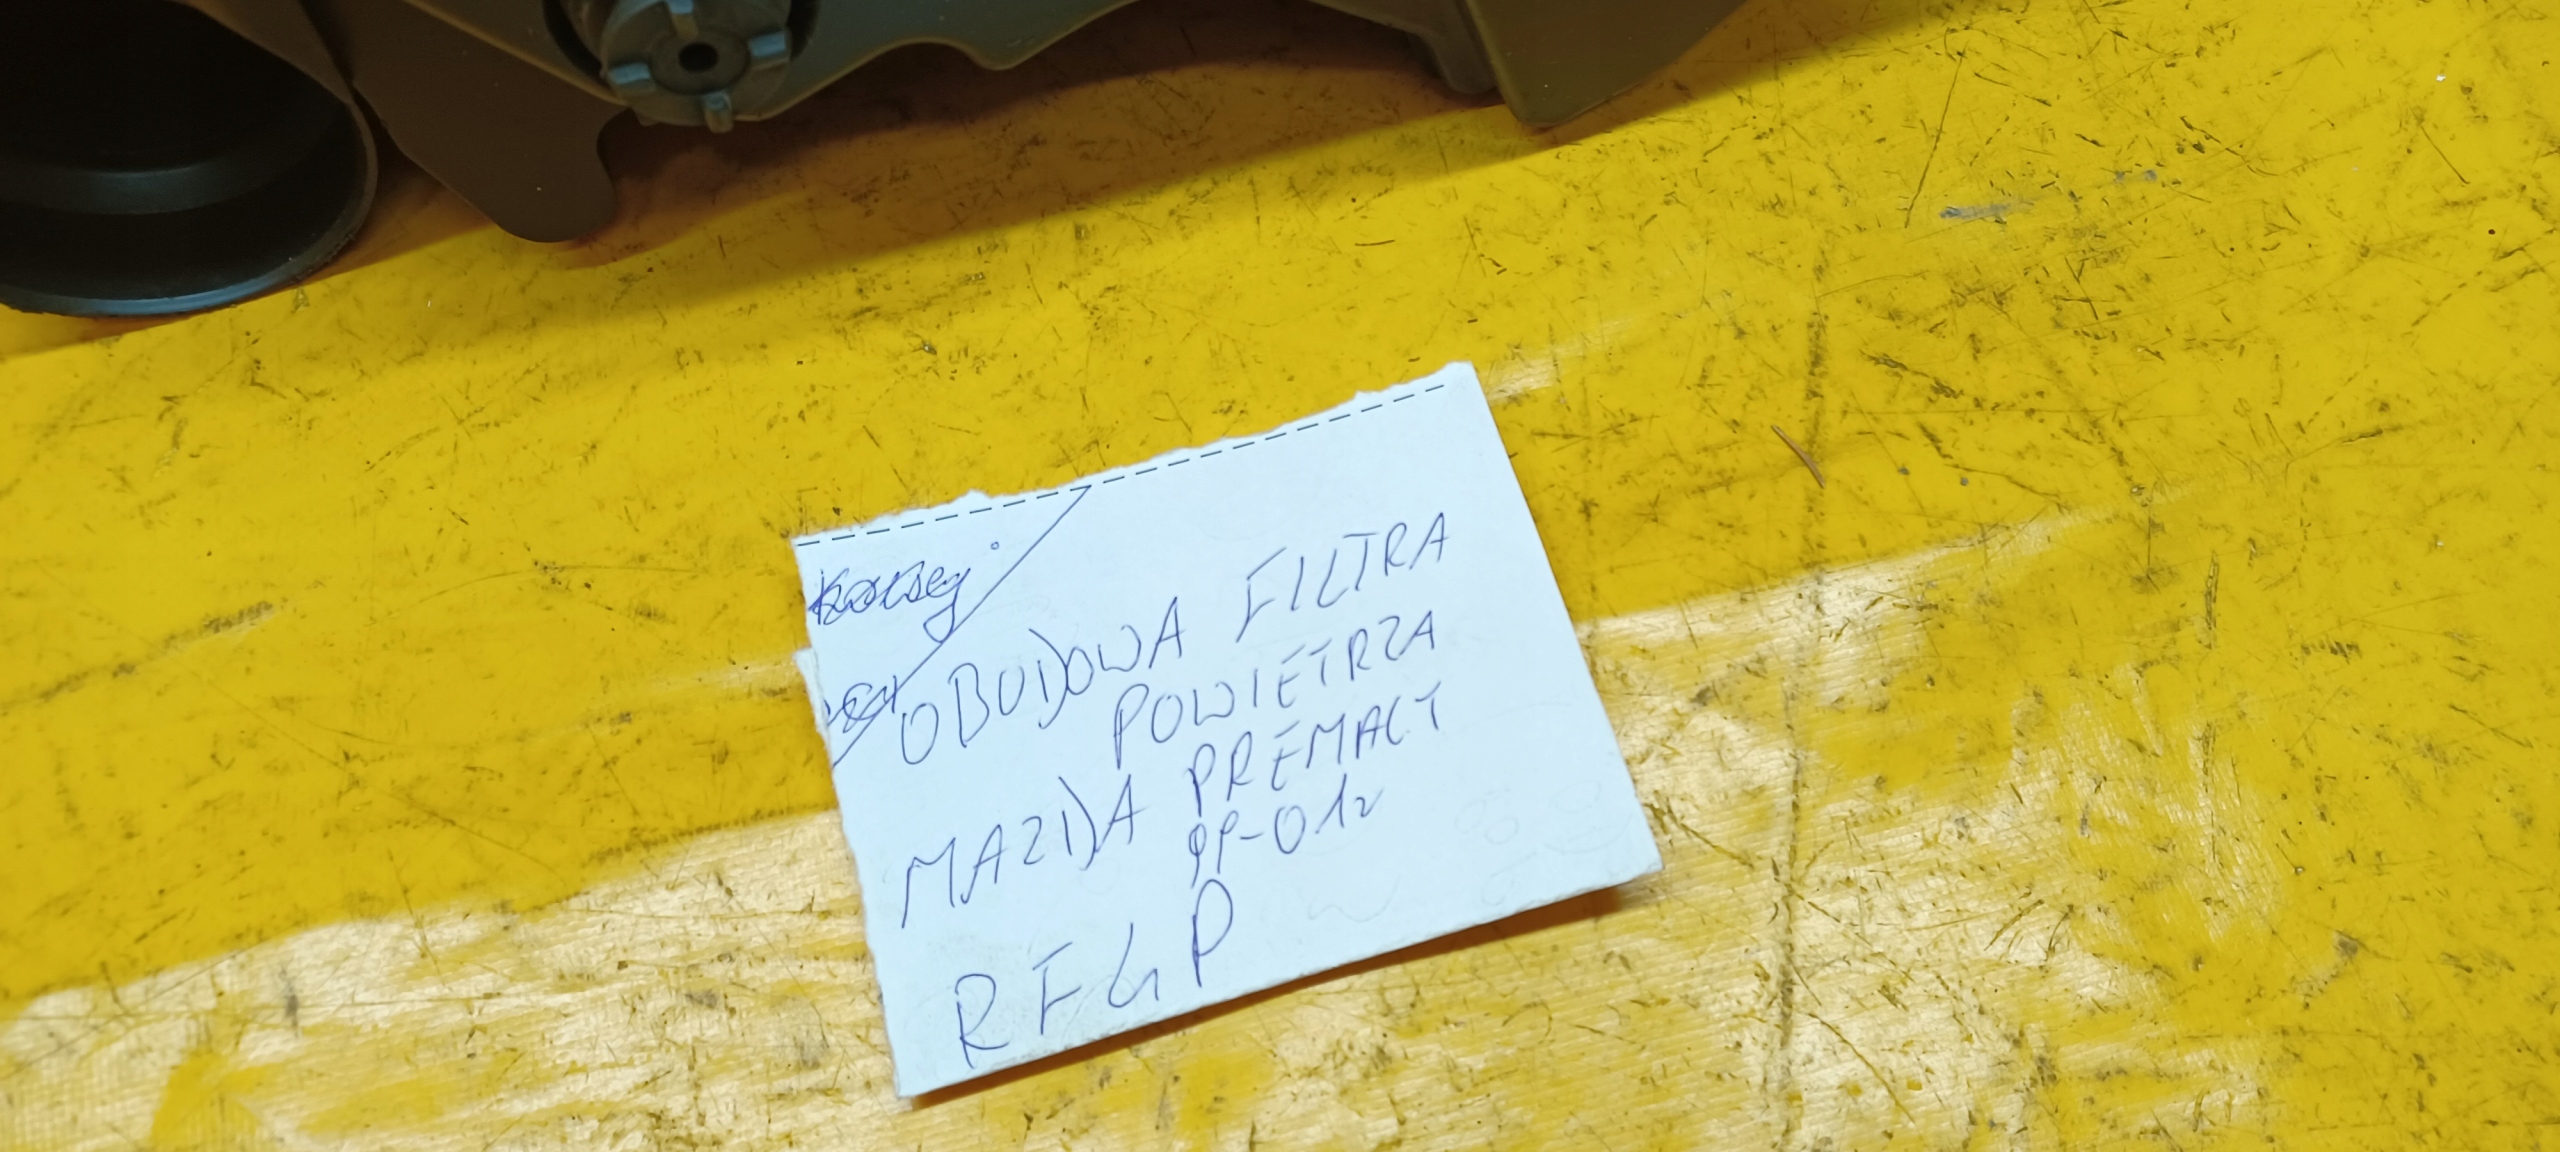 OBUDOWA FILTRA
POWIETRZA
MAZDA PREMACY
99-01r
RFGP